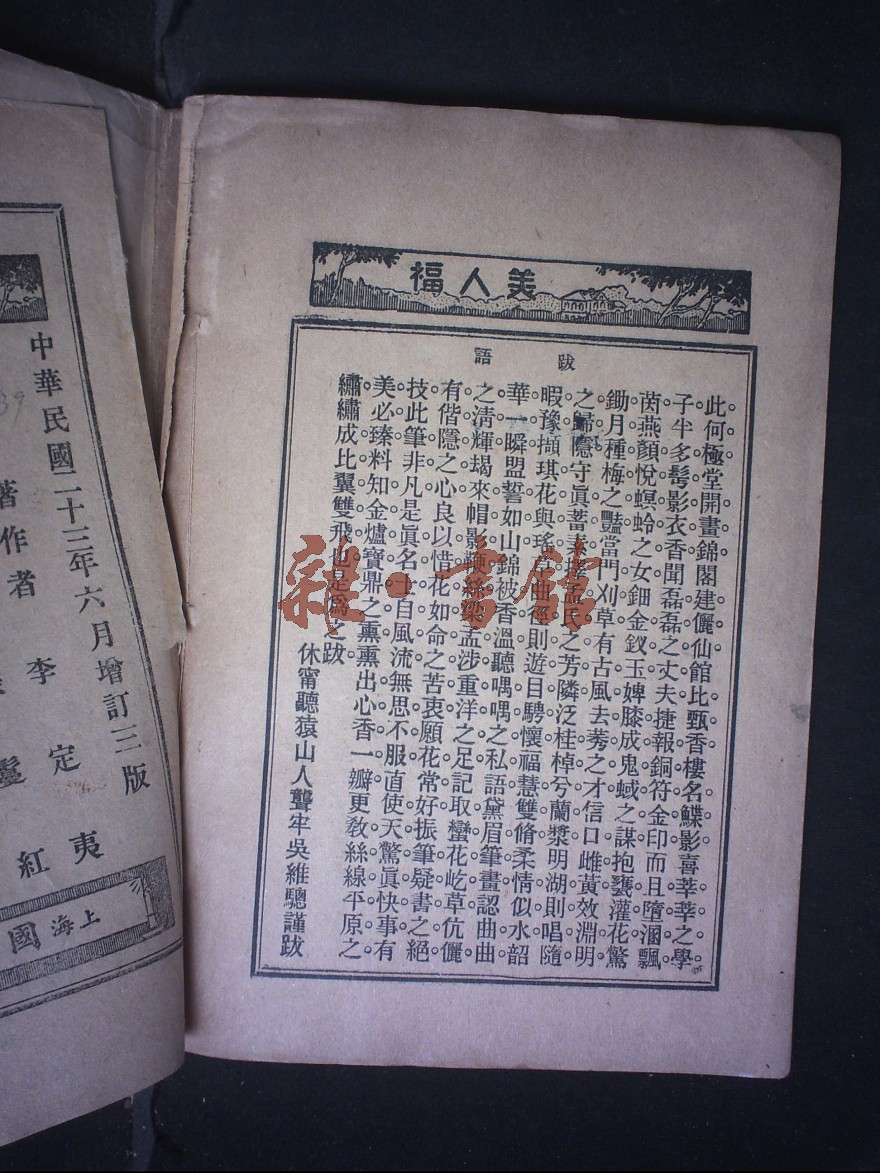 美人福
跋語
此何極堂開畫錦閣建儷仙館比甄香樓名鰈影喜莘莘之學
子半多髩影衣香聞磊磊之丈夫捷報銅符金印而且墮溷飄
茵燕顏悅螟蛉之女鈿金釵玉婢膝成鬼蜮之謀抱甕灌花驚
鋤月種梅之豔當門刈草有古風去莠之才信口雌黃效淵明
之歸隱守眞蓄素擇孟民之芳隣泛桂棹兮蘭槳明湖則唱隨
暇豫擷琪花與瑤 曲徑則遊目騁懷福慧雙脩柔情似水韶
華一瞬盟誓如山錦被香溫聽喁喁之私語黛眉筆畫認曲曲
之淸輝朅來帽影鞭絲梁孟涉重洋之足記取蠻花屹草伉儷
有偕隱之心良以惜花如命之苦衷願花常好振筆疑書之絕
技此筆非凡是眞名士自風流無思不服直使天驚眞快事有
美必臻料知金爐寶鼎之熏熏出心香一瓣更敎絲線平原之
繡繡成比翼雙飛也是爲之跋
休甯聽猿山人聾牢吳維驄謹跋
中華民國二十三年六月增訂三版
著作者 李定夷
紅
上海國
雜·書館